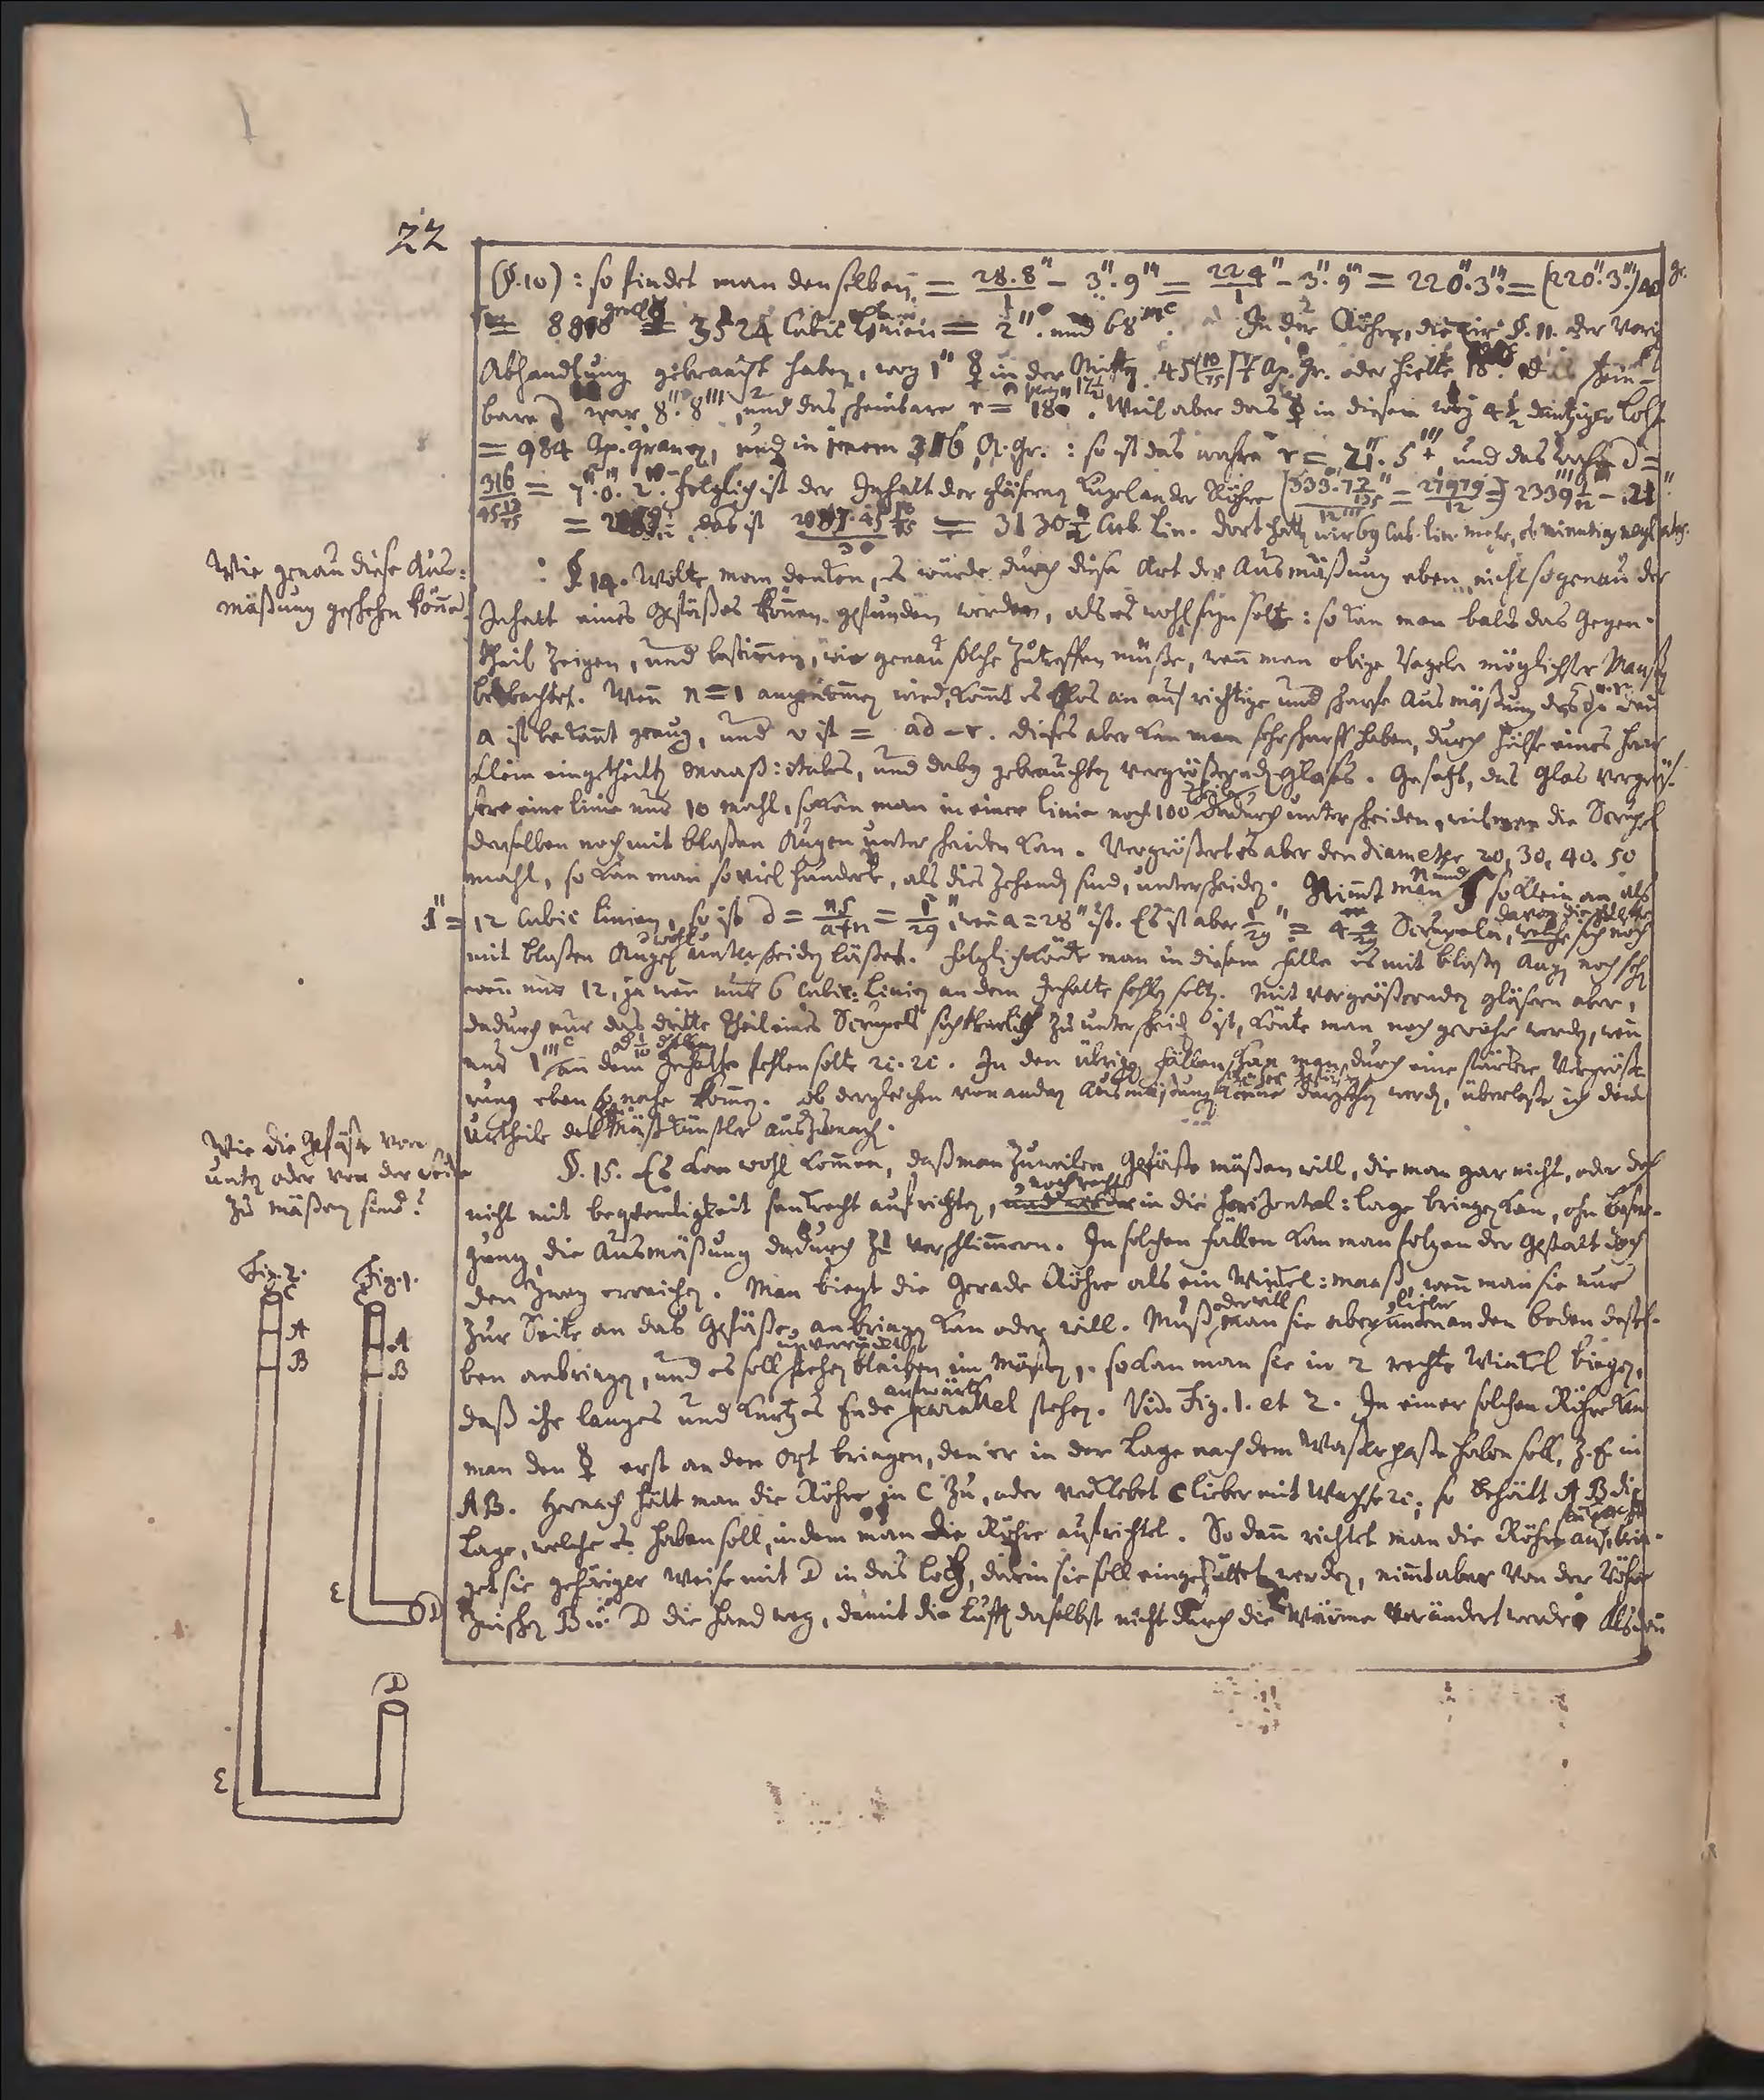 22
(§.10): so findet man denselben = 28.8''/1 - 3''.9''' = 224''/1 - 3''.9''' = 220''.3''' = (220''.3''')40 gr.
= 3524 Cubic Linien = 2''. und 68'''c. In der Röhre, die wir §. 11. der vorig
Abhandlung gebraucht haben, wog 1'' ☿ in der Mitten 45 Ap. gr. oder hielte
bare d war 8''.8''', und das scheinbare r = 18 . Weil aber das ☿ in diesem wog 4 1/2 dantziger Loht
= 984 Ap. granen, und in jenem 316 Ap. gr.: so ist das wahre r = 21''.5''' und das wahre d =
316/45 = 7''.0'''.2 folglich ist der Inhalt der gläsernen Kugel an der Röhre = 27979/12 = 2339 1/12 - 21''
das ist = 3130 Cub. Lin. dort hatten wir 69 Cub. lin. mehr,
Wie genau diese Aus-
mäßung geschehen könne
§ 14. Wolte man denken, es würde durch diese Art der Ausmäßung eben nicht so genau der
Inhalt eines Gefäßes können gefunden werden, als es wohl seyn solte: so kan man bald das Gegen-
theil zeigen, und bestimmen, wie genau solche zutreffen müße, wenn man obige Regeln möglichster Maaßen
beobachtet. Wenn n = 1 angenommen wird, komt es blos an auf richtige und scharfe Ausmäßung des d. den
a ist bekant genug, und v ist = ad - r. dieses aber kan man sehr scharff haben, durch Hülfe eines
klein eingetheilten Maaß: stabes, und dabey gebrauchten vergrößernden Glases. Gesetzt, das Glas vergrös-
sere eine linie nur 10 mahl, so kan man in einer linie noch 100 Theile dadurch unterscheiden, weil man die Scrupel
derselben noch mit bloßen Augen unterscheiden kan. Vergrößert es aber den diameter 20, 30, 40. 50
mahl, so kan man so viel hundert, als dies Zehend sind, unterscheiden. Nimt man n und f so klein an als
1'' = 12 Cubic linien, so ist d = nf/a+n = 1/29'', wenn a = 28'' ist. Es ist aber 1/29'' = 4 4/29 Scrupeln, davon die Helfte sich noch
mit bloßen Augen wohl unterscheiden läßet. Folglich könte man in diesem Falle es mit bloßen Augen noch sehen
wenn nur 12, ja wenn nur 6 Cubic: Linien an dem Inhalte fehlen solten. Mit vergrößernden Gläsern aber,
dadurch nur das dritte Theil eines Scrupels sichtbarlich zu unterscheiden ist, könte man noch gewahr werden, wenn
nur 1'''c an dem Inhalte fehlen solte ꝛc. ꝛc. In den übrigen Fällen kan man durch eine stärkere Vergröße-
rung eben so nahe kommen. Ob dergleichen von andern Ausmäßungen könne dargethan werden, überlaße ich dem
Urtheile der Mäßkünstler auszumachen.
Wie die Gefäße von
unten oder von der Seite
zu mäßen sind?
§. 15. Es kan wohl kommen, daß man zuweilen Gefäße mäßen will, die man gar nicht, oder doch
nicht mit beqvemligkeit senkrecht aufrichten, noch recht in die Horizontal: lage bringen kan, ohn besor-
gung, die Ausmäßung dadurch zu verschlimmern. In solchen Fällen kan man folgender Gestalt doch
den Zweg erreichen. Man biegt die Gerade Röhre als ein Winkel: maaß, wenn man sie nur
zur Seite an das Gefäße anbringen kan oder will. Muß oder will man sie aber lieber unten an den boden dessel-
ben anbringen, und es soll unverrückt stehen bleiben im Mäßen, so kan man sie in 2 rechte Winkel biegen,
daß ihr langes und kurtzes Ende aufwärts parallel stehen. Vid. Fig. 1. et 2. In einer solchen Röhre kan
man den ☿ erst an den Ort bringen, den er in der Lage nach dem Waßerpaße haben soll, Z. E. in
AB. Hernach hält man die Röhre in C zu, oder verklebet C lieber mit Wachse ꝛc. so behält AB die
Lage, welche es haben soll, indem man die Röhre aufrichtet. So dann richtet man die Röhre auf, brin-
get sie gehöriger Weise mit D in das Loch, darin sie soll eingeküttet werden, nimt aber von der Röhre
zwischen B u. D die Hand weg, damit die Luft daselbst nicht durch die Wärme verändert werde. Alsdenn
Fig. 2. Fig. 1.
C C
A A
B B
E D
D
E